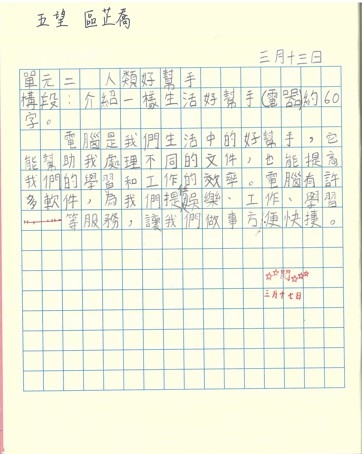 五望 區芷喬
三月十三日
單元二 人類好幫手
構段：介紹一樣生活好幫手(電器)約60
字。
電腦是我們生活中的好幫手，它
能幫助我處理不同的文件，也能提高
我們的學習和工作的效率。電腦有許
多軟件，為我們提供娛樂、工作、學習
等服務，讓我們做事方便快捷。
三月十七日